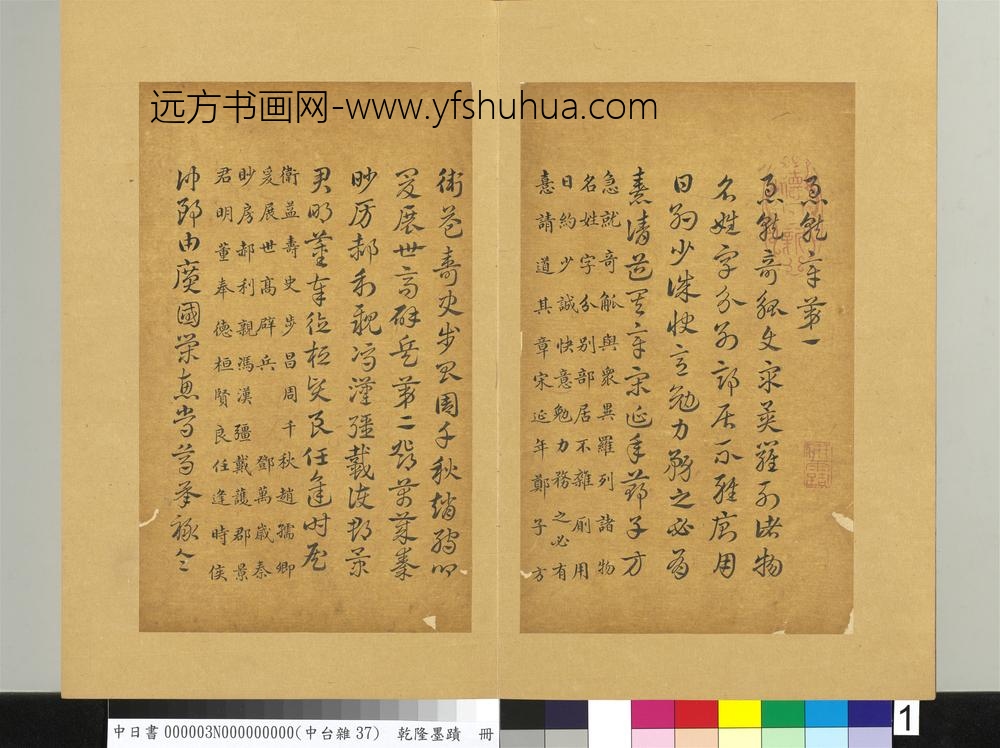 远方书画网-www.yfshuhua.com
急就章第一
急就奇觚與衆異羅列諸物
名姓字分別部居不雜廁用
日約少誠快意勉力務之必有
憙請道其章宋延年鄭子方
急就奇觚與衆異羅列諸物
名姓字分別部居不雜廁用
日約少誠快意勉力務之必有
憙請道其章宋延年鄭子方
衛益壽史步昌周千秋趙孺卿
爰展世高辟兵第二鄧萬歲秦
眇房郝利親馮漢彊戴護郡景
君明董奉德桓賢良任逢時侯
衛益壽史步昌周千秋趙孺卿
爰展世高辟兵 鄧萬歲秦
眇房郝利親馮漢彊戴護郡景
君明董奉德桓賢良任逢時侯
仲郎由廣國榮惠常烏承祿令
中日書000003N000000000(中台雜37) 乾隆墨蹟 冊
1